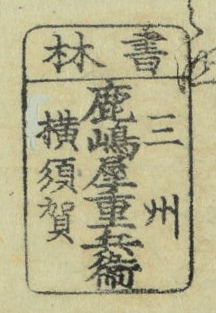 書林
三州
鹿嶋屋重兵衞
横須賀